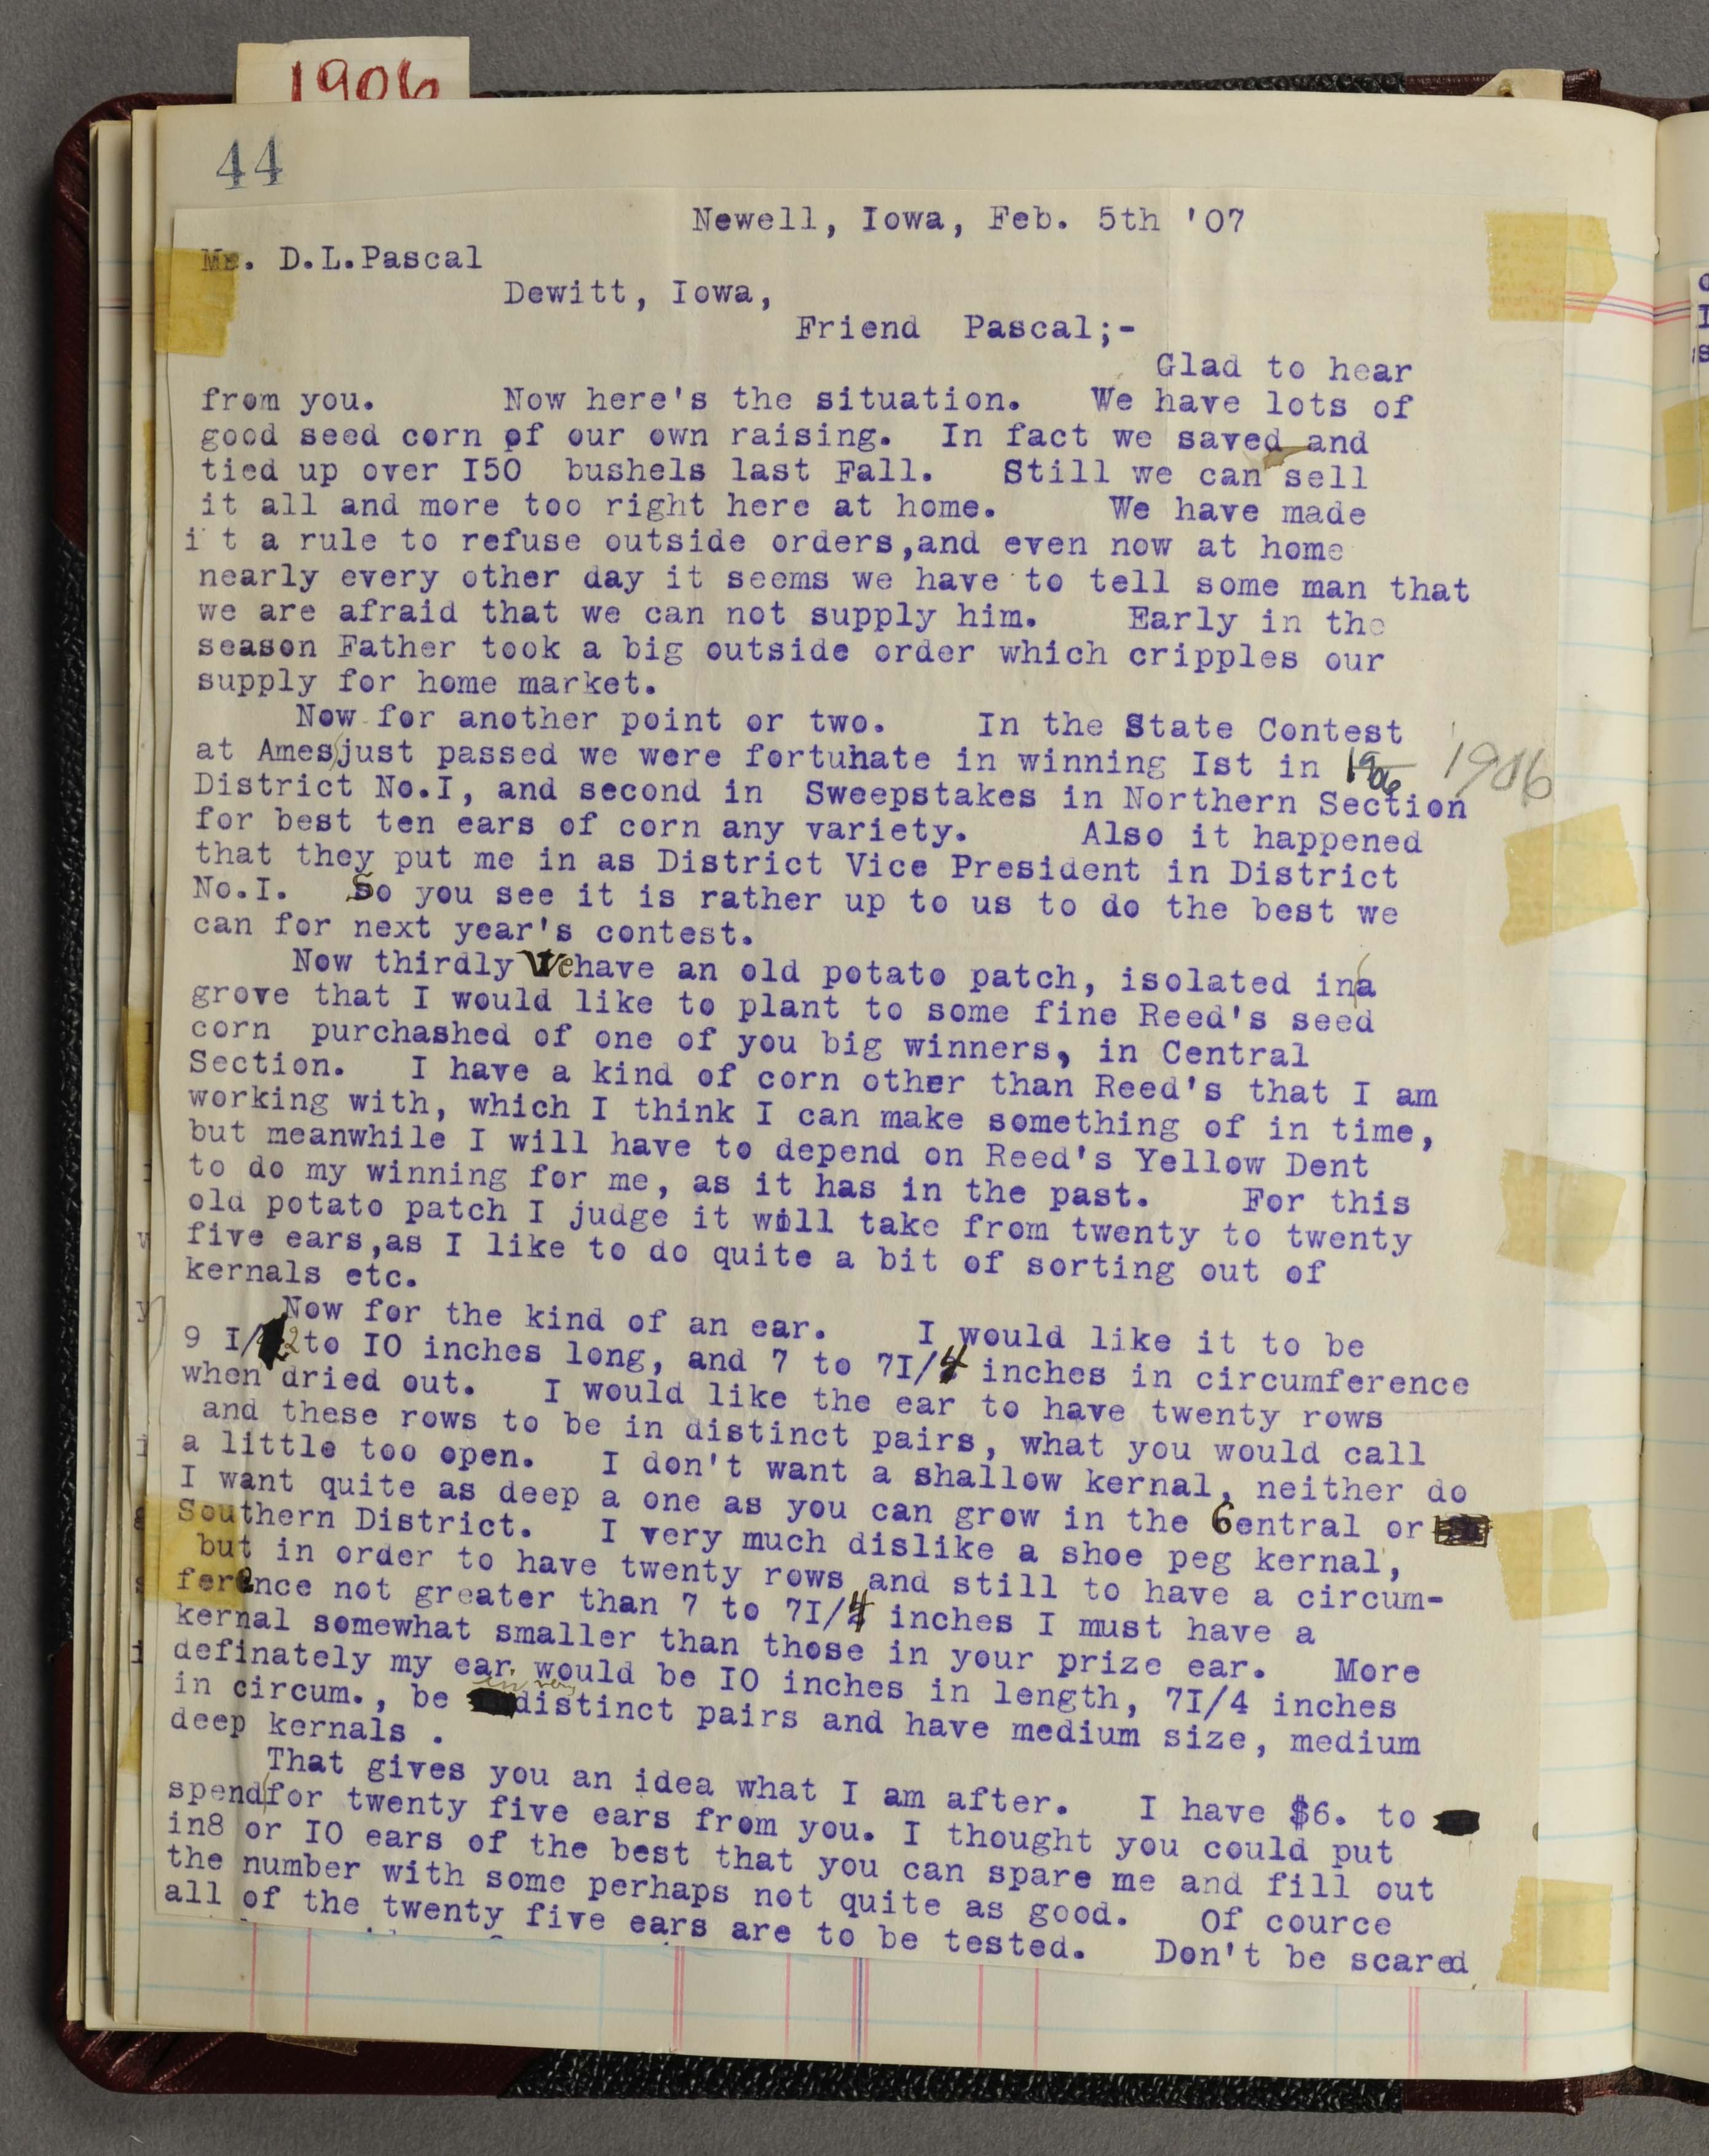 1906
44
Newell, Iowa, Feb. 5th '07
Mr. D.L.Pascal
Dewitt, Iowa,
Friend Pascal;-
Glad to hear
from you. Now here's the situation. We have lots of
good seed corn of our own raising. In fact we saved and
tied up over I50 bushels last Fall. Still we can sell
it all and more too right here at home. We have made
i t a rule to refuse outside orders,and even now at home
nearly every other day it seems we have to tell some man that
we are afraid that we can not supply him. Early in the
season Father took a big outside order which cripples our
supply for home market.
Now for another point or two. In the State Contest
at Ames just passed we were fortunate in winning Ist in 1906 1906
District No.I, and second in Sweepstakes in Northern Section
for best ten ears of corn any variety. Also it happened
that they put me in as District Vice President in District
No.I. So you see it is rather up to us to do the best we
can for next year's contest.
Now thirdly We have an old potato patch, isolated in a
grove that I would like to plant to some fine Reed's seed
corn purchashed of one of you big winners, in Central
Section. I have a kind of corn other than Reed's that I am
working with, which I think I can make something of in time,
but meanwhile I will have to depend on Reed's Yellow Dent
to do my winning for me, as it has in the past. For this
old potato patch I judge it will take from twenty to twenty
five ears,as I like to do quite a bit of sorting out of
kernals etc.
Now for the kind of an ear. I would like it to be
9 I/2 to IO inches long, and 7 to 7I/4 inches in circumference
when dried out. I would like the ear to have twenty rows
and these rows to be in distinct pairs, what you would call
a little too open. I don't want a shallow kernal, neither do
I want quite as deep a one as you can grow in the Central or
Southern District. I very much dislike a shoe peg kernal,
but in order to have twenty rows and still to have a circum-
ference not greater than 7 to 7I/4 inches I must have a
kernal somewhat smaller than those in your prize ear. More
definately my ear would be IO inches in length, 7I/4 inches
in circum., be in very distinct pairs and have medium size, medium
deep kernals .
That gives you an idea what I am after. I have $6. to
spend for twenty five ears from you. I thought you could put
in8 or IO ears of the best that you can spare me and fill out
the number with some perhaps not quite as good. Of cource
all of the twenty five ears are to be tested. Don't be scared